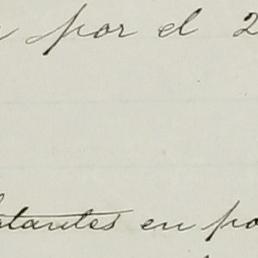 por el 2
tantes en po